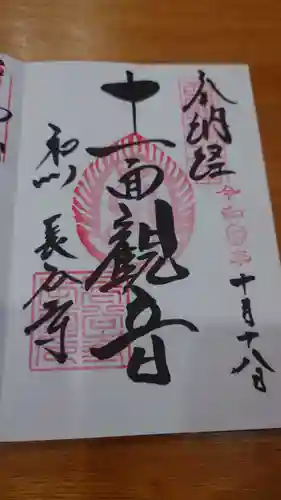 奉納経
令和
十月十八日
十一面観音
長谷寺